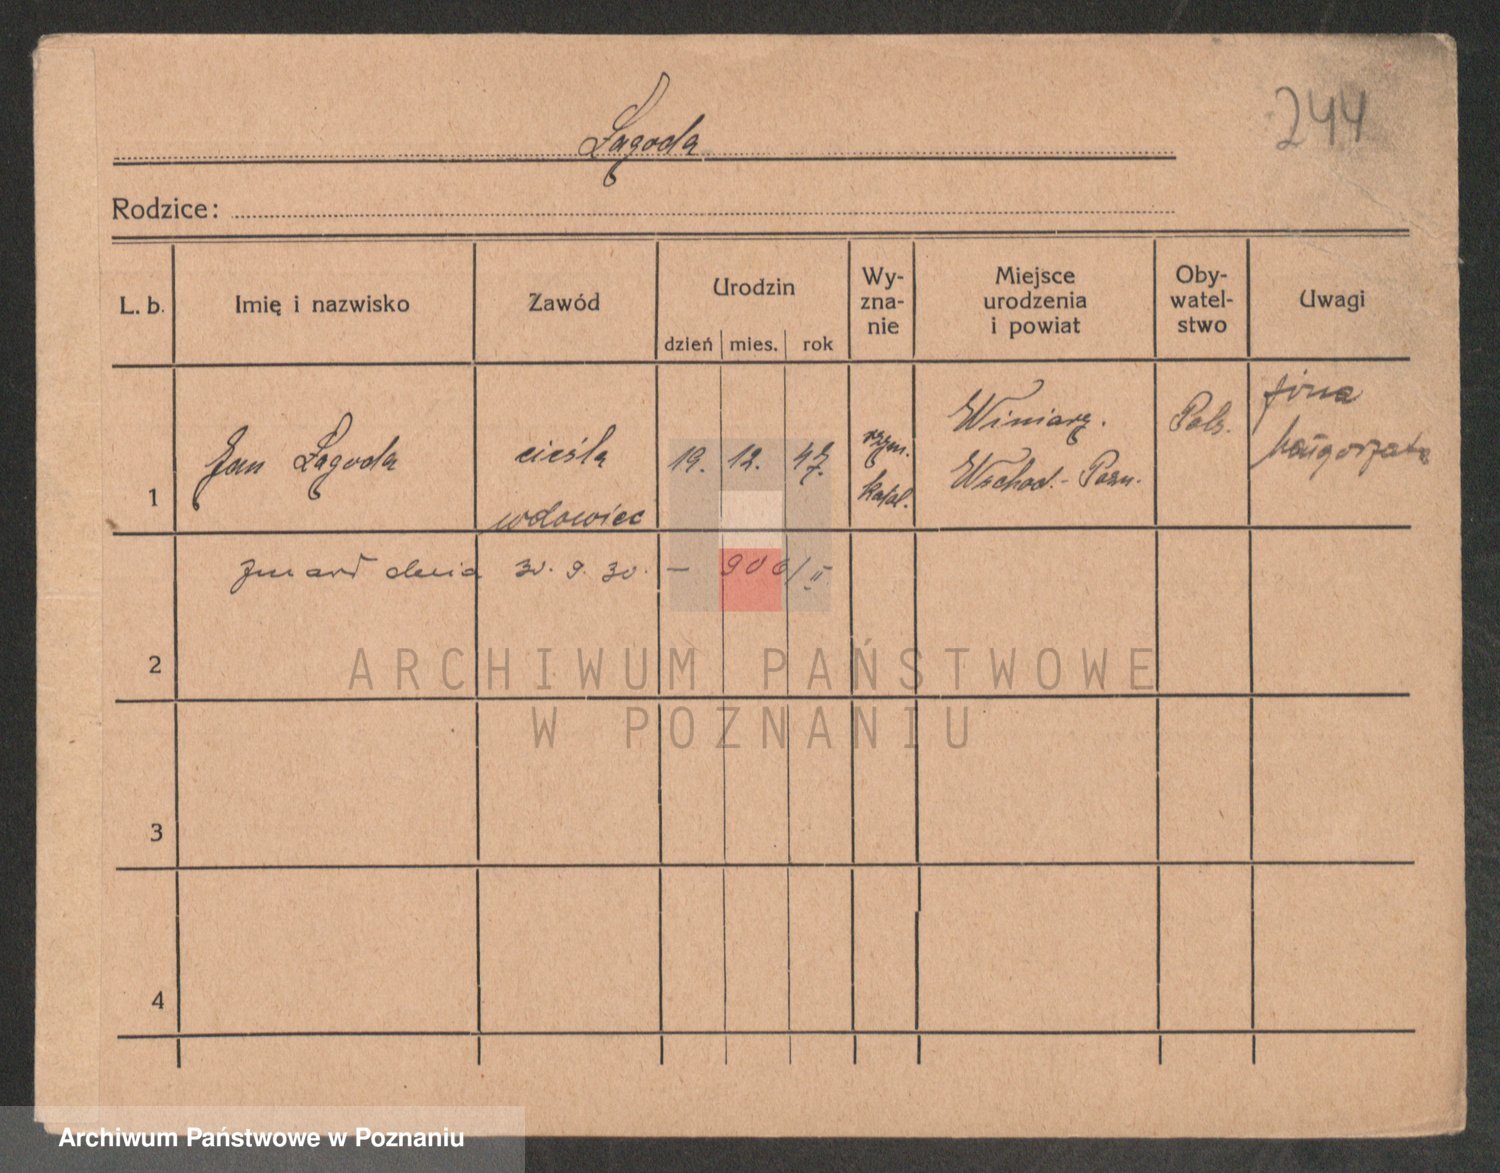 244
Łagoda
Rodzice:
L. b.
Imię i nazwisko
Zawód
Urodzin
dzień mies. rok
Wy-
zna-
nie
Miejsce
urodzenia
i powiat
Oby-
watel-
stwo
Uwagi
1
Jan Łagoda
cieśla
wdowiec
19. 12. 47.
rzym.
katol.
Winiarz.
Wschod. - Pozn.
Pols.
Małgorzata
zmarł dnia 30. 9. 30. - 906/II
2
3
4
ARCHIWUM PAŃSTWOWE
W POZNANIU
Archiwum Państwowe w Poznaniu